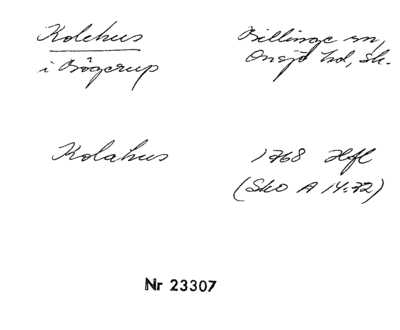 Kolehus
i Bögerup
Billinge sn,
Onsjö hd, Sk.
Kolahus
1768 Hfl
(Sko A 14:72)
Nr 23307